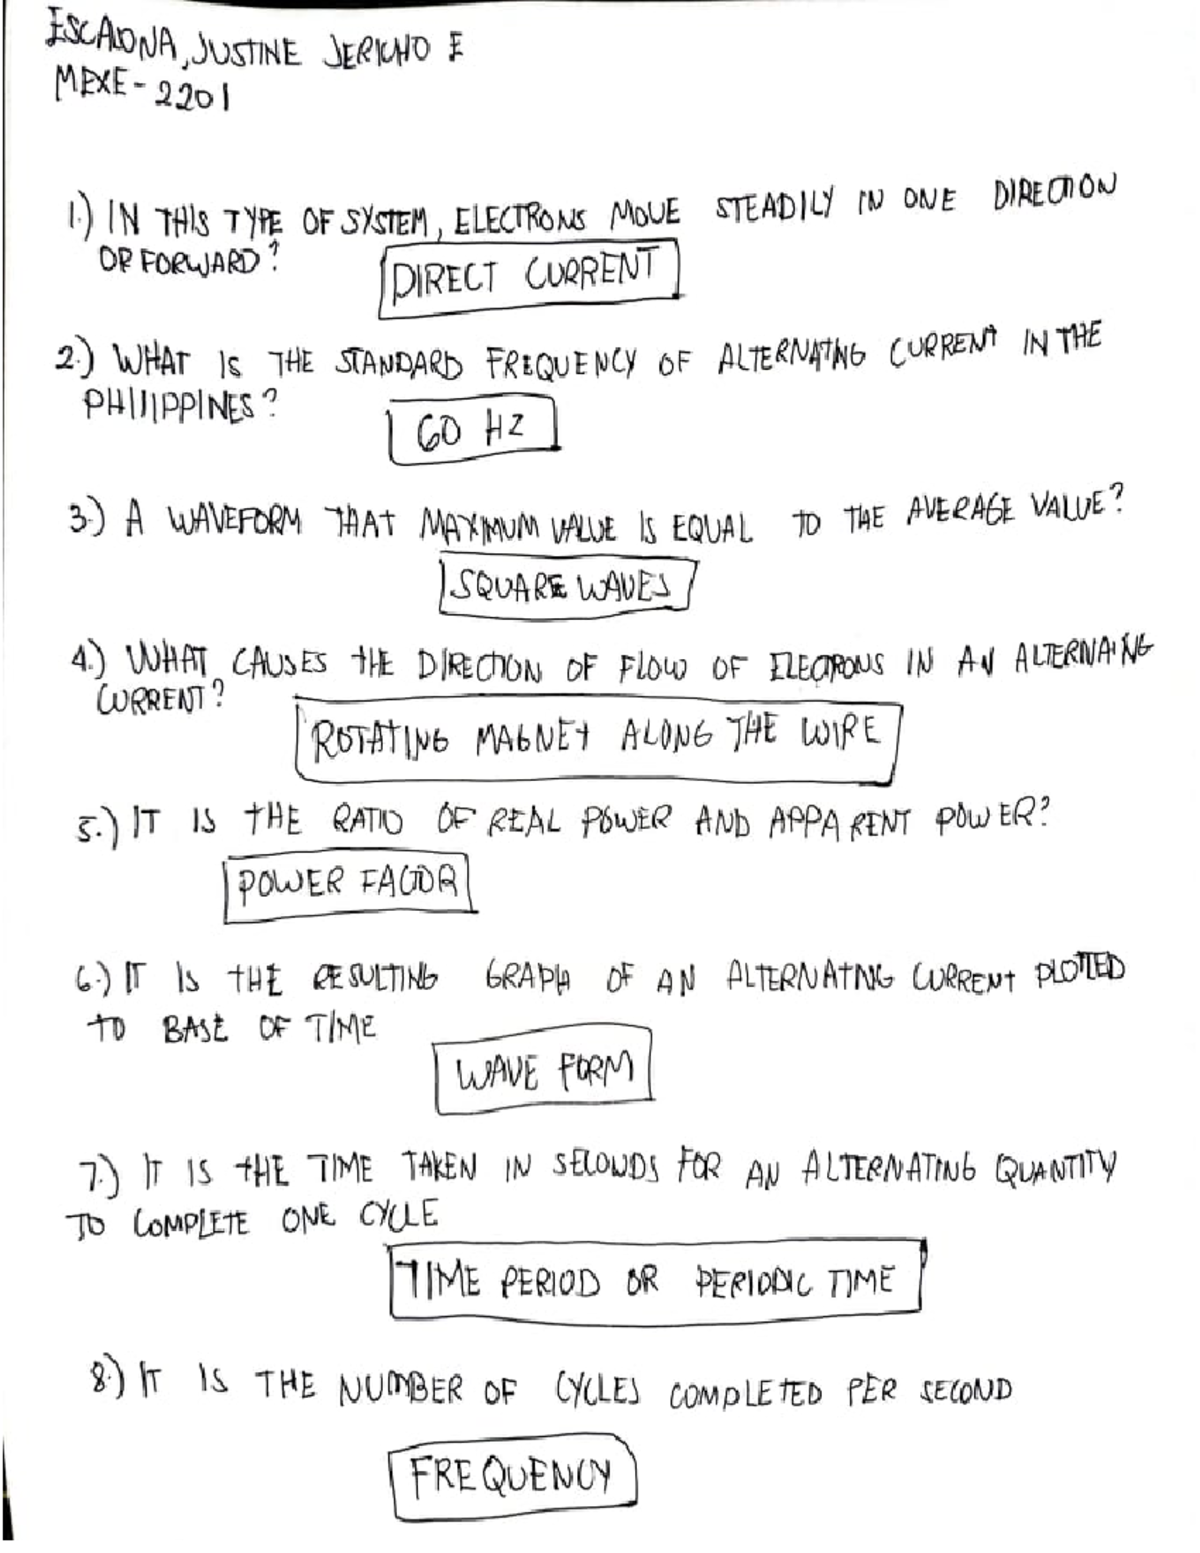 ESCALONA, JUSTINE JERICHO E
MEXE-2201
1.) IN THIS TYPE OF SYSTEM, ELECTRONS MOVE STEADILY IN ONE DIRECTION
OR FORWARD?
DIRECT CURRENT
2.) WHAT IS THE STANDARD FREQUENCY OF ALTERNATING CURRENT IN THE
PHILIPPINES?
60 HZ
3.) A WAVEFORM THAT MAXIMUM VALUE IS EQUAL TO THE AVERAGE VALUE?
SQUARE WAVES
4.) WHAT CAUSES THE DIRECTION OF FLOW OF ELECTRONS IN AN ALTERNAING
CURRENT?
ROTATING MAGNET ALONG THE WIRE
5.) IT IS THE RATIO OF REAL POWER AND APPARENT POWER?
POWER FACTOR
6.) IT IS THE RESULTING GRAPH OF AN ALTERNATNG CURRENT PLOTTED
TO BASE OF TIME
WAVE FORM
7.) IT IS THE TIME TAKEN IN SECONDS FOR AN ALTERNATING QUANTITY
TO COMPLETE ONE CYCLE
TIME PERIOD OR PERIODIC TIME
8.) IT IS THE NUMBER OF CYCLES COMPLETED PER SECOND
FREQUENCY